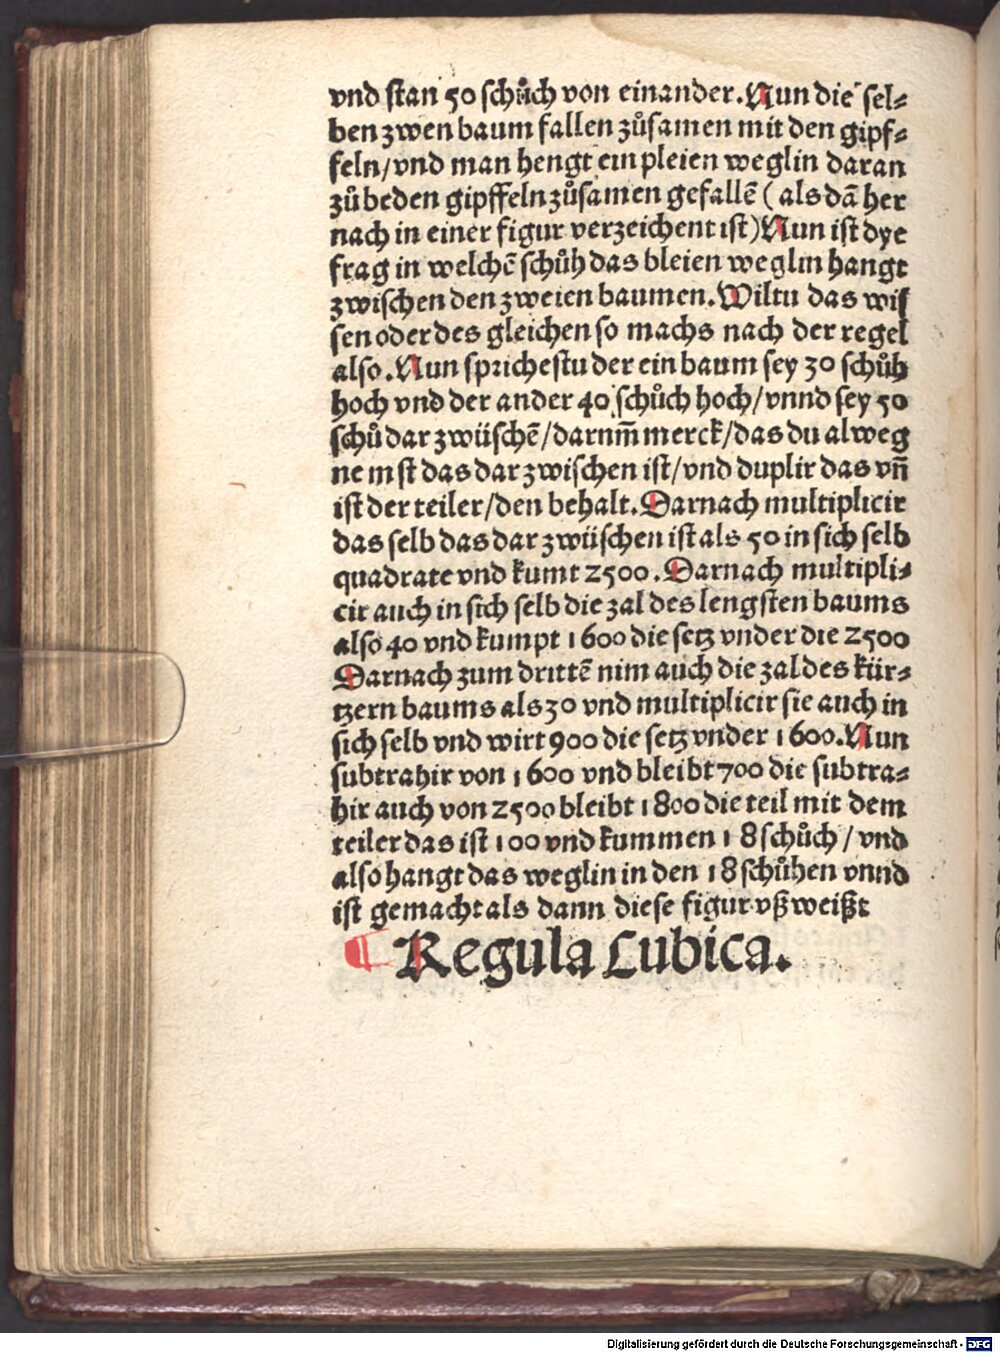 vnd stan 50 schůch von einander. Nun die sel⸗
ben zwen baum fallen zůsamen mit den gipf⸗
feln/vnd man hengt ein pleien weglin daran
zů beden gipffeln zůsamen gefallē (als dā her
nach in einer figur verzeichent ist) Nun ist dye
frag in welchē schůh das bleien weglin hangt
zwischen den zweien baumen. Wiltu das wis
sen oder des gleichen so machs nach der regel
also. Nun sprichestu der ein baum sey 30 schůh
hoch vnd der ander 40 schůch hoch/vnnd sey 50
schů dar zwüschē/darum̄ merck/das du alweg
nemst das dar zwischen ist/vnd duplir das vn̄
ist der teiler/den behalt. Darnach multiplicir
das selb das dar zwüschen ist als 50 in sich selb
quadrate vnd kumt 2500. Darnach multipli⸗
cir auch in sich selb die zal des lengsten baums
also 40 vnd kumpt 1600 die setz vnder die 2500
Darnach zum drittē nim auch die zal des kür⸗
tzern baums als 30 vnd multiplicir sie auch in
sich selb vnd wirt 900 die setz vnder 1600. Nun
subtrahir von 1600 vnd bleibt 700 die subtra⸗
hir auch von 2500 bleibt 1800 die teil mit dem
teiler das ist 100 vnd kummen 18 schůch/vnd
also hangt das weglin in den 18 schůhen vnnd
ist gemacht als dann diese figur vß weißt
¶ Regula Cubica.
Digitalisierung gefördert durch die Deutsche Forschungsgemeinschaft - DFG